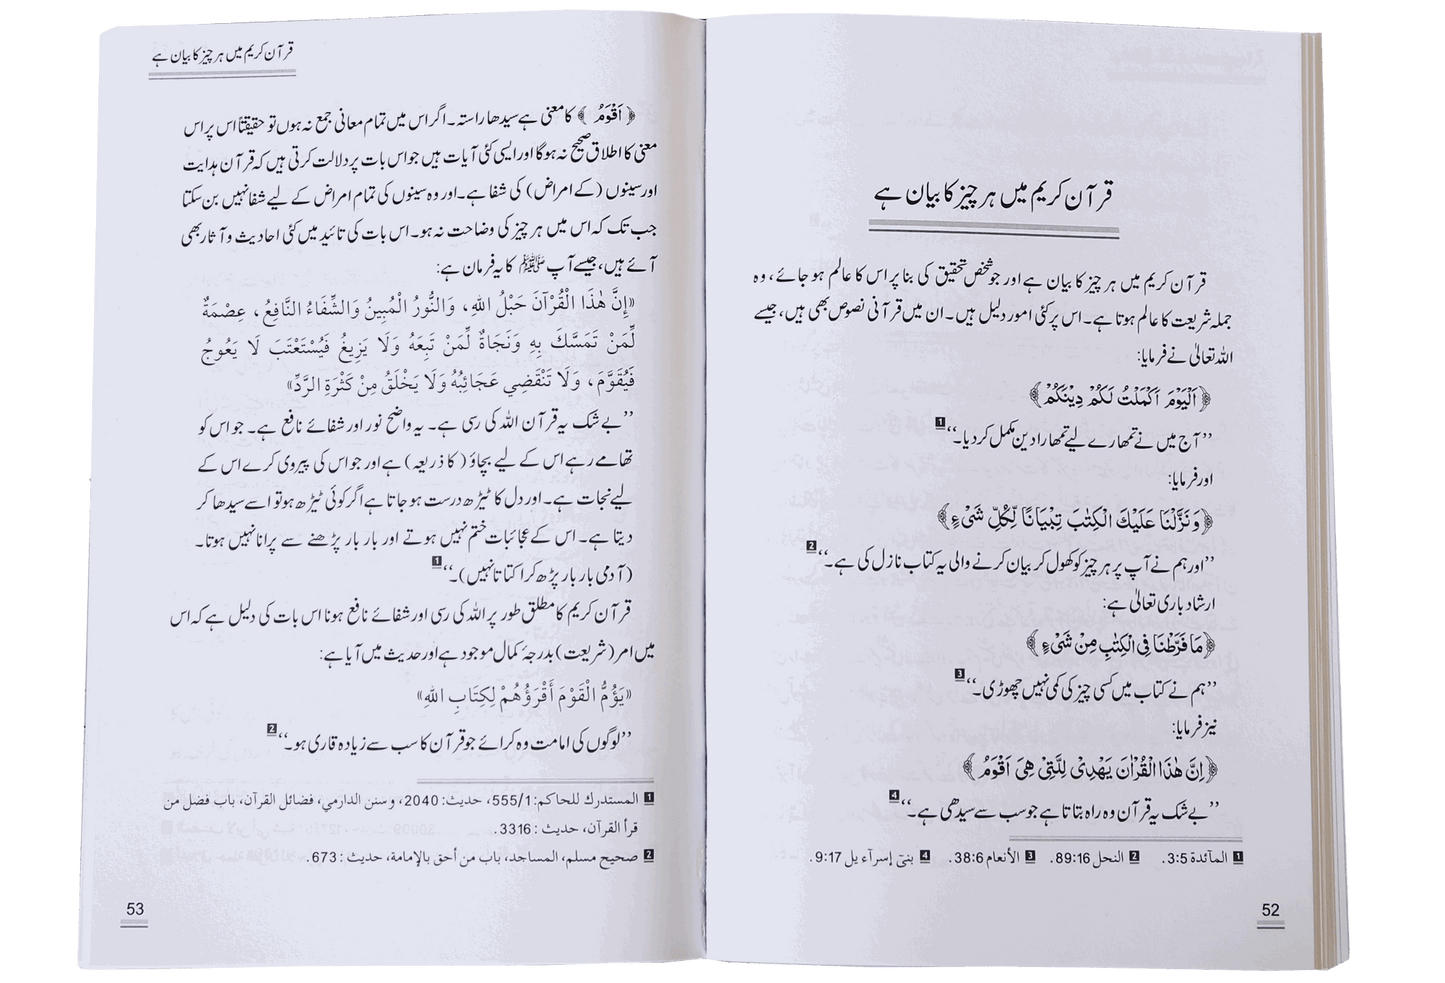 قرآن کریم میں ہر چیز کا بیان ہے
قرآن کریم میں ہر چیز کا بیان ہے اور جو شخص تحقیق کی بنا پر اس کا عالم ہو جائے، وہ
جملہ شریعت کا عالم ہوتا ہے۔ اس پر کئی امور دلیل ہیں۔ ان میں قرآنی نصوص بھی ہیں، جیسے
اللہ تعالیٰ نے فرمایا:
﴿اَلْيَوْمَ اَكْمَلْتُ لَكُمْ دِيْنَكُمْ﴾
’’آج میں نے تمھارے لیے تمھارا دین مکمل کر دیا۔‘‘ 1
اور فرمایا:
﴿وَ نَزَّلْنَا عَلَيْكَ الْكِتٰبَ تِبْيَانًا لِّكُلِّ شَىْءٍ﴾
’’اور ہم نے آپ پر ہر چیز کو کھول کر بیان کرنے والی یہ کتاب نازل کی ہے۔‘‘ 2
ارشاد باری تعالیٰ ہے:
﴿مَا فَرَّطْنَا فِى الْكِتٰبِ مِنْ شَىْءٍ﴾
’’ہم نے کتاب میں کسی چیز کی کمی نہیں چھوڑی۔‘‘ 3
نیز فرمایا:
﴿اِنَّ هٰذَا الْقُرْاٰنَ يَهْدِىْ لِلَّتِىْ هِىَ اَقْوَمُ﴾
’’بے شک یہ قرآن وہ راہ بتاتا ہے جو سب سے سیدھی ہے۔‘‘ 4
1 المآئدة 3:5. 2 النحل 89:16. 3 الأنعام 38:6. 4 بنيٓ إسرآءيل 9:17.
52
قرآن کریم میں ہر چیز کا بیان ہے
﴿اَقْوَمُ﴾ کا معنی ہے سیدھا راستہ۔ اگر اس میں تمام معانی جمع نہ ہوں تو حقیقتًا اس پر اس
معنی کا اطلاق صحیح نہ ہوگا اور ایسی کئی آیات ہیں جو اس بات پر دلالت کرتی ہیں کہ قرآن ہدایت
اور سینوں (کے امراض) کی شفا ہے۔ اور وہ سینوں کی تمام امراض کے لیے شفا نہیں بن سکتا
جب تک کہ اس میں ہر چیز کی وضاحت نہ ہو۔ اس بات کی تائید میں کئی احادیث و آثار بھی
آئے ہیں، جیسے آپ ﷺ کا یہ فرمان ہے:
«إِنَّ هٰذَا الْقُرْآنَ حَبْلُ اللهِ، وَالنُّورُ الْمُبِينُ وَالشِّفَاءُ النَّافِعُ، عِصْمَةٌ
لِّمَنْ تَمَسَّكَ بِهِ وَنَجَاةٌ لِّمَنْ تَبِعَهُ وَلَا يَزِيغُ فَيُسْتَعْتَبَ لَا يَعُوجُ
فَيُقَوَّمَ، وَلَا تَنْقَضِي عَجَائِبُهُ وَلَا يَخْلَقُ مِنْ كَثْرَةِ الرَّدِّ»
’’بے شک یہ قرآن اللہ کی رسی ہے۔ یہ واضح نور اور شفائے نافع ہے۔ جو اس کو
تھامے رہے اس کے لیے بچاؤ (کا ذریعہ) ہے اور جو اس کی پیروی کرے اس کے
لیے نجات ہے۔ اور دل کا ٹیڑھ درست ہو جاتا ہے اگر کوئی ٹیڑھ ہو تو اسے سیدھا کر
دیتا ہے۔ اس کے عجائبات ختم نہیں ہوتے اور بار بار پڑھنے سے پرانا نہیں ہوتا۔
(آدمی بار بار پڑھ کر اکتاتا نہیں)۔‘‘ 1
قرآن کریم کا مطلق طور پر اللہ کی رسی اور شفائے نافع ہونا اس بات کی دلیل ہے کہ اس
میں امر (شریعت) بدرجہٴ کمال موجود ہے اور حدیث میں آیا ہے:
«يَؤُمُّ الْقَوْمَ أَقْرَؤُهُمْ لِكِتَابِ اللهِ»
’’لوگوں کی امامت وہ کرائے جو قرآن کا سب سے زیادہ قاری ہو۔‘‘ 2
1 المستدرك للحاكم: 555/1، حديث: 2040، و سنن الدارمي، فضائل القرآن، باب فضل من
قرأ القرآن، حديث : 3316.
2 صحيح مسلم، المساجد، باب من أحق بالإمامة، حديث : 673.
53